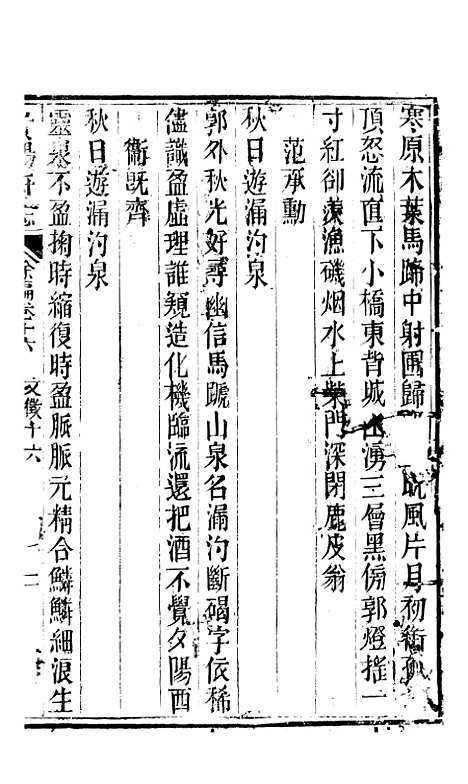 寒原木葉馬蹄中射圃歸 晚風片月初銜孤
頂怒流直下小橋東背城山湧三層黑傍郭燈搖一
寸紅卻羨漁磯烟水上柴門深閉鹿皮翁
范承勳
秋日遊漏汋泉
郭外秋光好尋幽信馬蹏山泉名漏汋斷碣字依稀
儘識盈虛理誰窺造化機臨流還把酒不覺夕陽西
衞既齊
秋日遊漏汋泉
靈泉不盈掬時縮復時盈脈脈元精合鱗鱗細浪生
貴陽府志 餘編卷十六 文徵十六